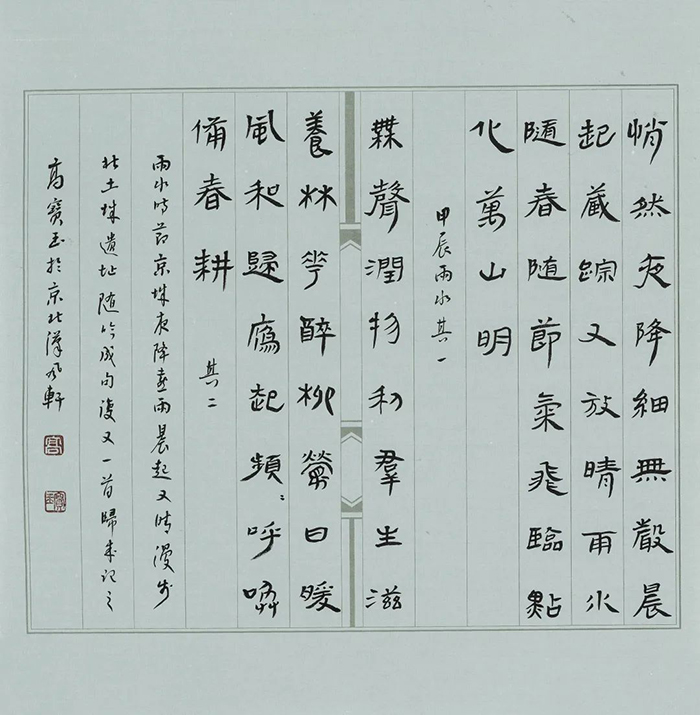 悄然夜降細無聲晨
起藏踪又放晴雨水
隨春随節氣飛臨點
化萬山明
甲辰雨水 其一
無聲潤物利羣生滋
養林花醉柳鶯日暖
風和歸鴈起頻〻呼喚
備春耕 其二
雨水時節京城夜降喜雨晨起又晴漫步
北土城遺址随吟成句復又一首歸來記之
高寶玉於京北漢風軒